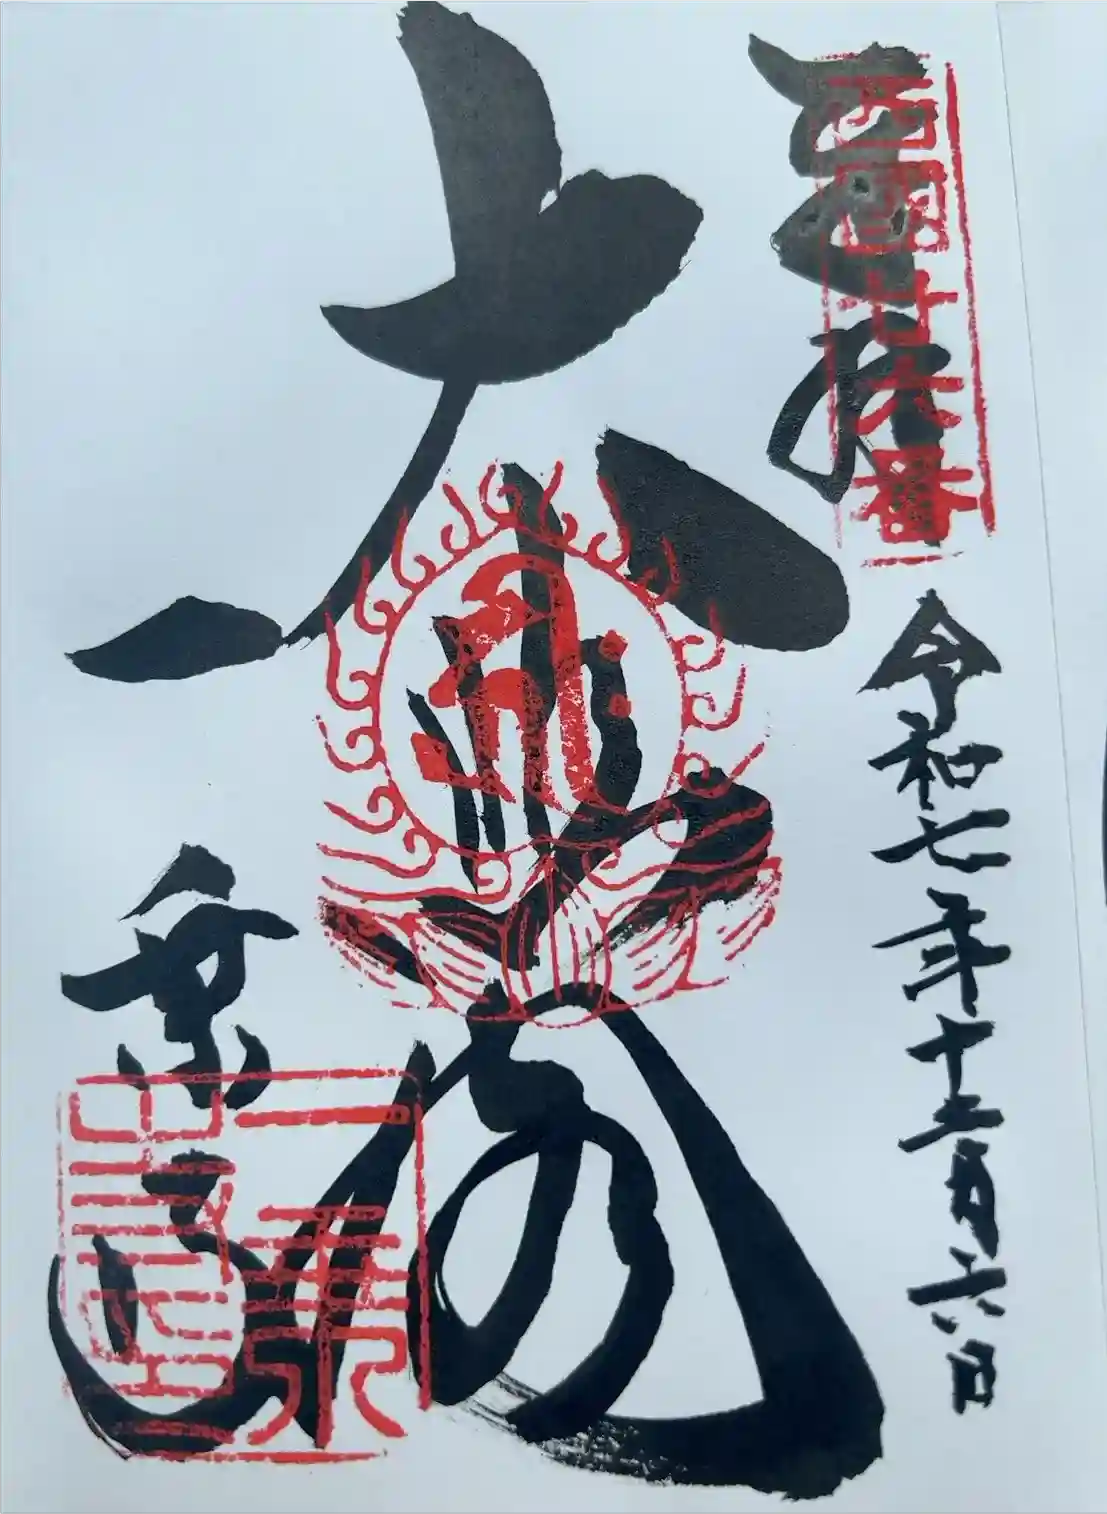 奉拝
西國廿六番
令和七年十二月六日
大悲閣
一乗寺